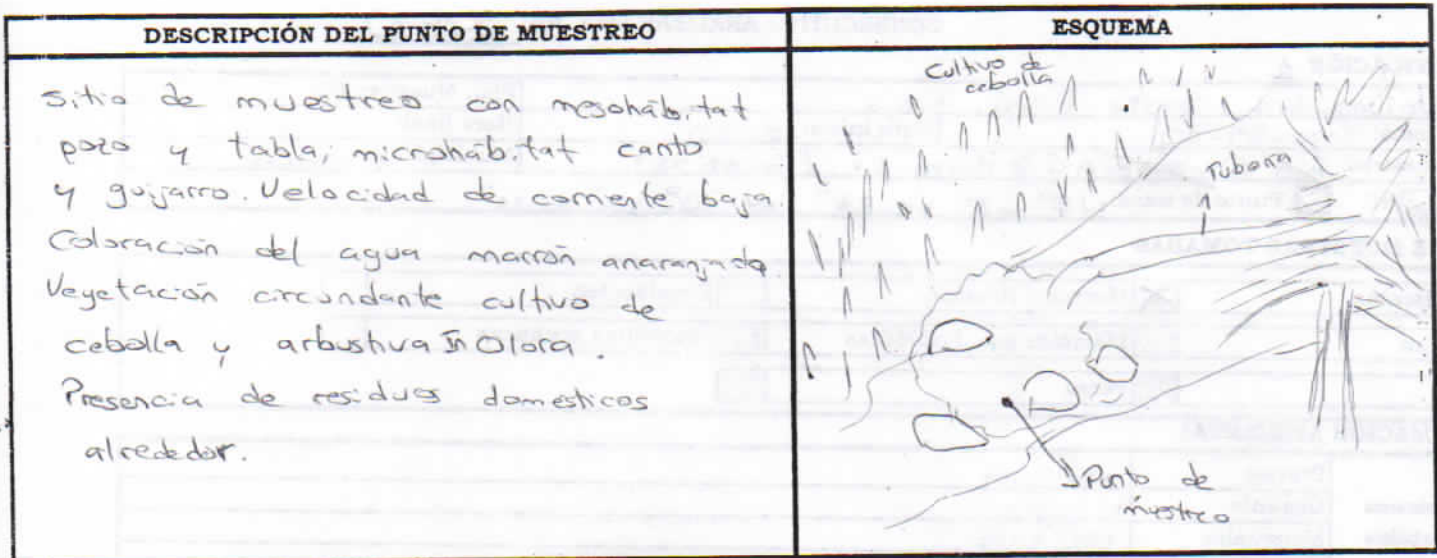 DESCRIPCIÓN DEL PUNTO DE MUESTREO
Sitio de muestreo con mesohábitat
pozo y tabla, microhábitat canto
y guijarro. Velocidad de corriente baja.
Coloración del agua marrón anaranjado
Vegetación circundante cultivo de
cebolla y arbustiva Inolora.
Presencia de residuos domesticos
alrededor.
ESQUEMA
Cultivo de
cebolla
Tuberia
Punto de
muestreo